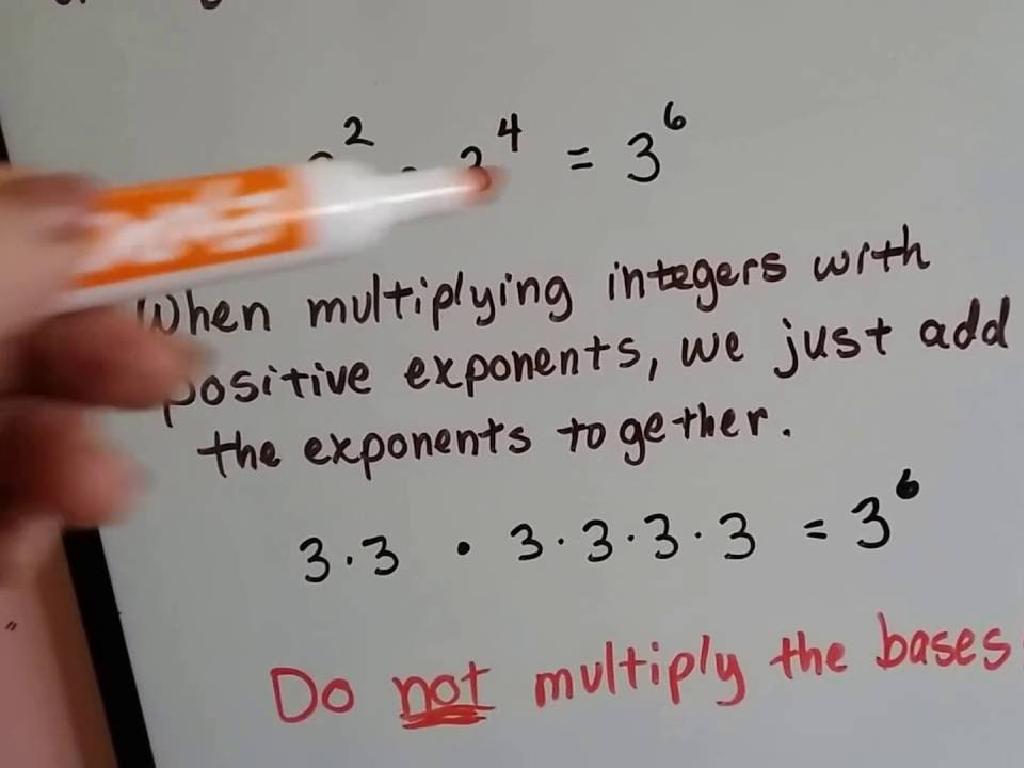 2 4 = 3^6
When multiplying integers with
positive exponents, we just add
the exponents together.
3 · 3 · 3 · 3 · 3 · 3 = 3^6
Do not multiply the bases